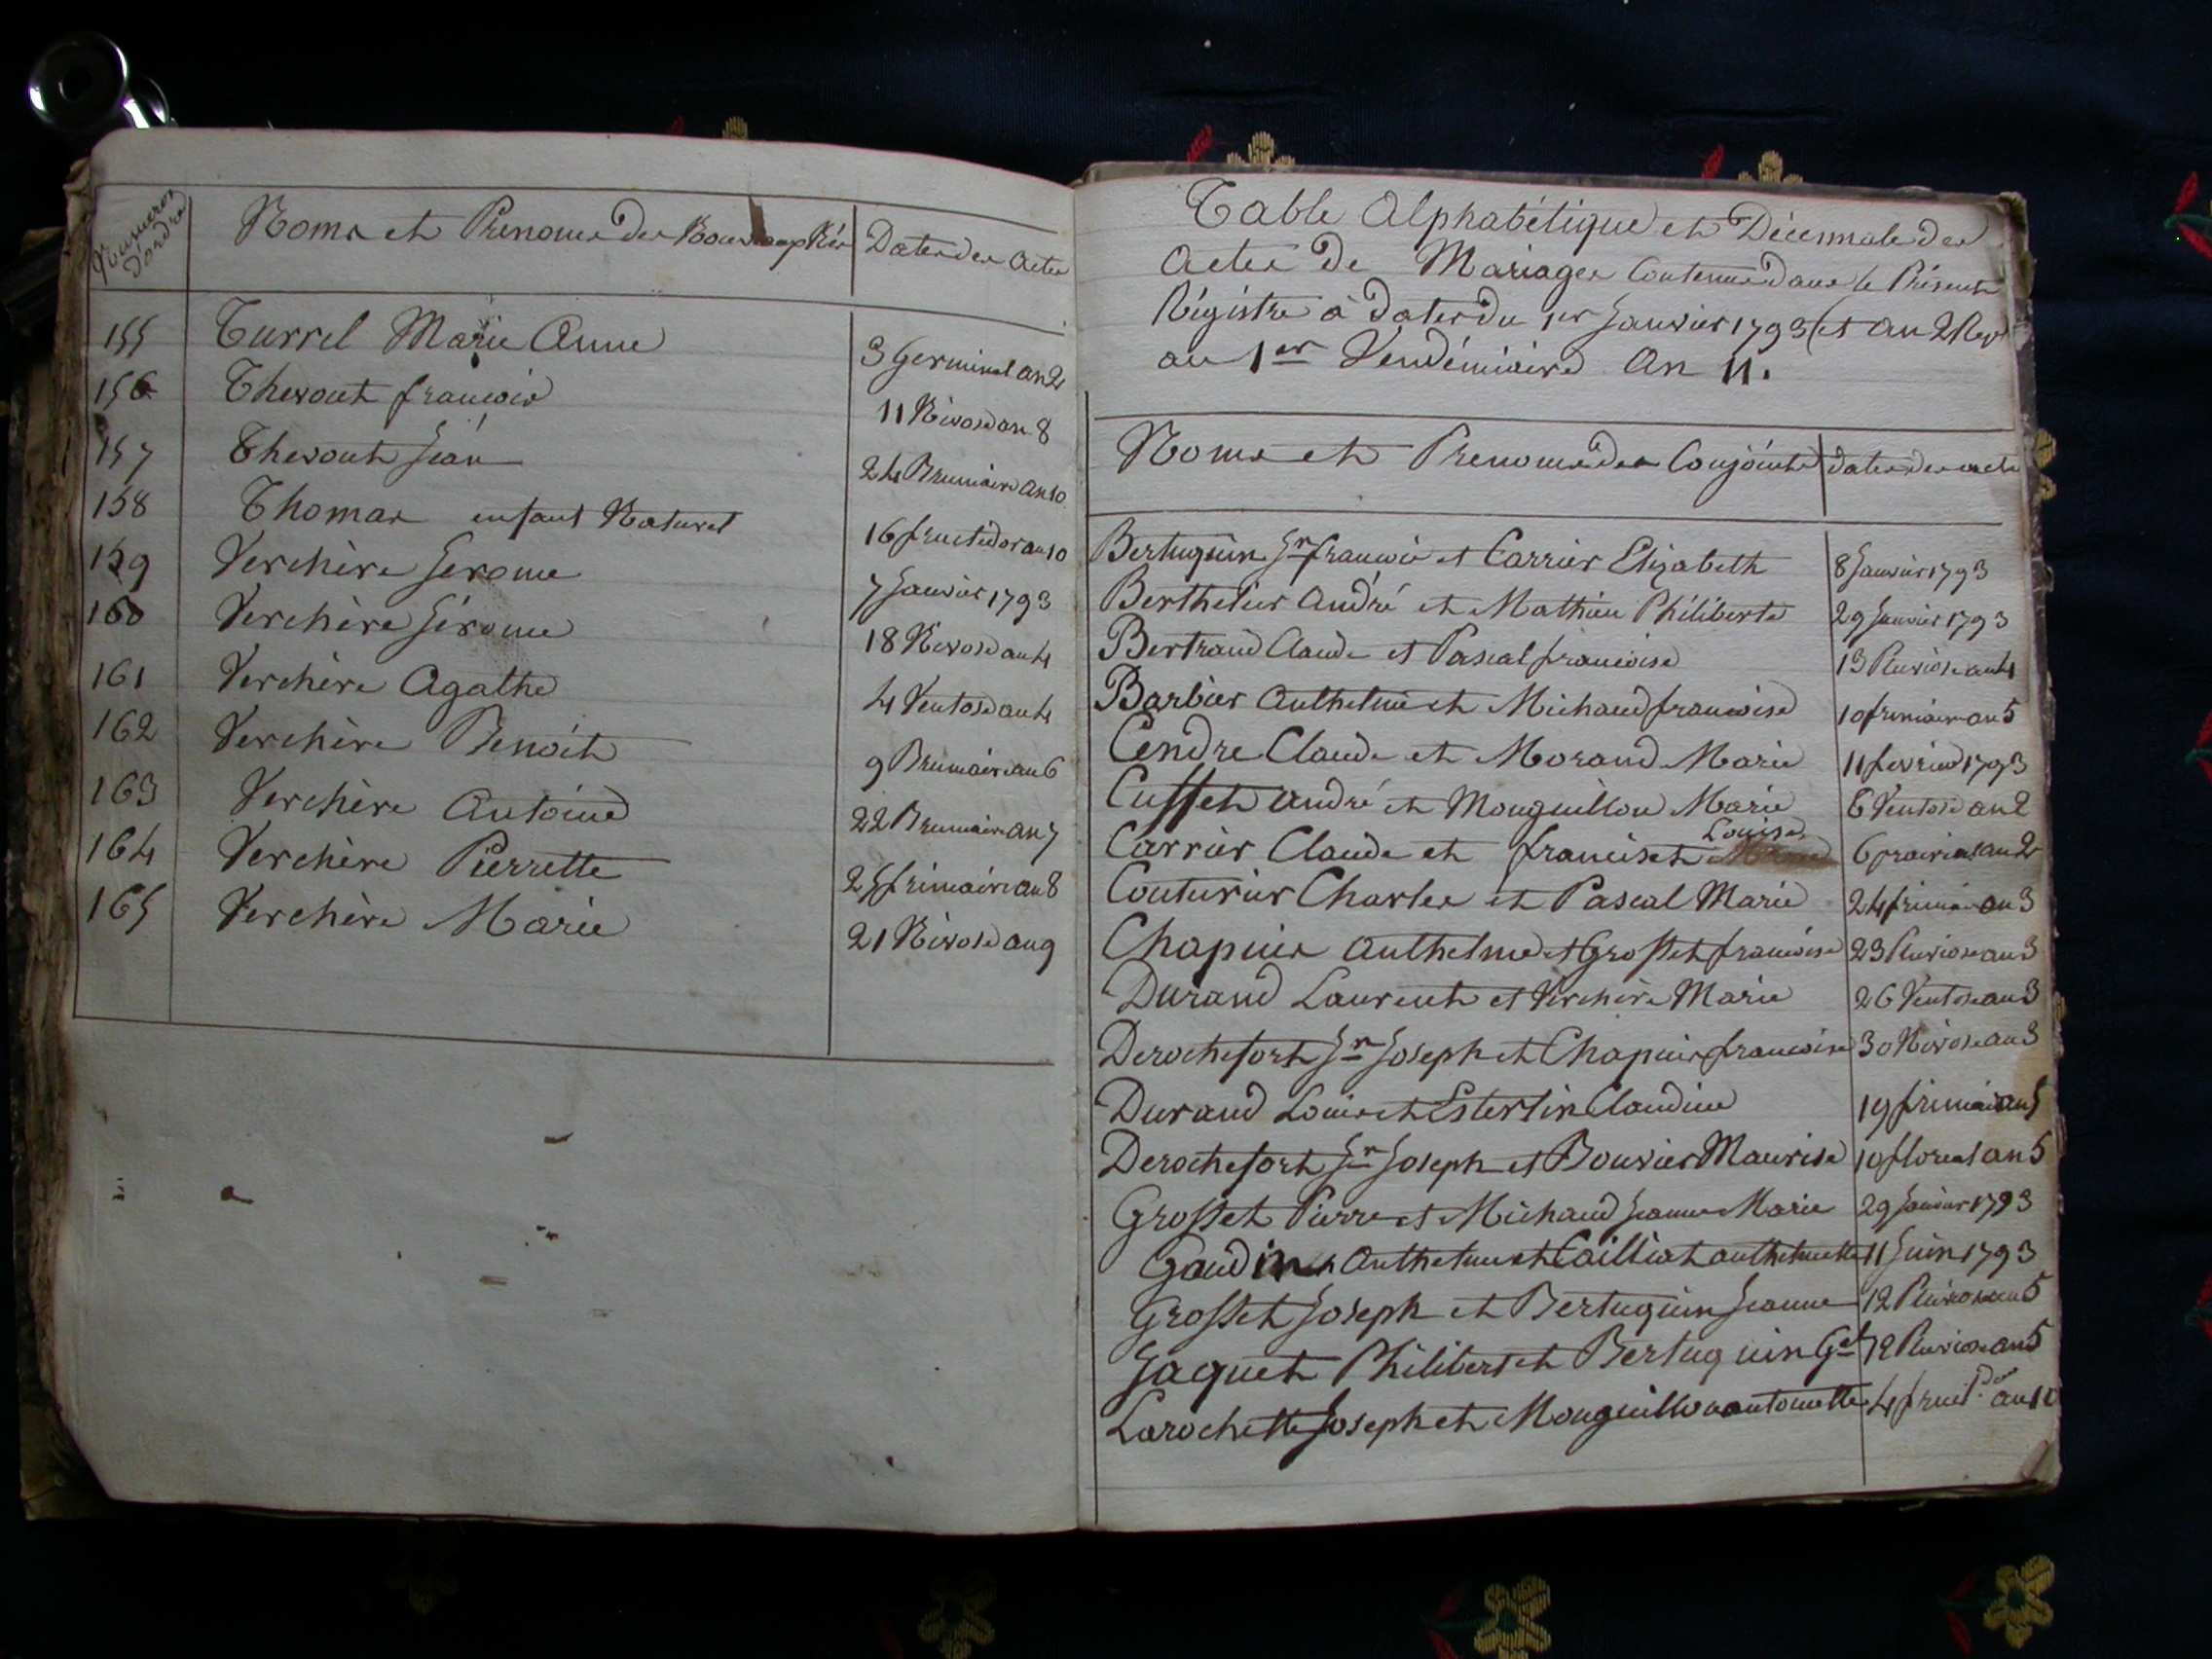 Numeros d'ordre | Noms et Prenoms des Nouveaux Nés | Dates des Actes
155 Turrel Marie Anne 3 Germinal an 2
156 Thevout francois 11 Nivose an 8
157 Thevout Jean 24 Brumaire an 10
158 Thomas enfant Naturel 16 fructidor an 10
159 Verchère Jerome 7 Janvier 1793
160 Verchère Jérome 18 Nivose an 4
161 Verchère Agathe 4 Ventose an 4
162 Verchère Benoit 9 Brumaire an 6
163 Verchère Antoine 22 Brumaire an 7
164 Verchère Pierrette 25 frimaire an 8
165 Verchère Marie 21 Nivose an 9
Table Alphabétique et Décennale des
Actes de Mariages Contenus dans le Présent
Régistre à Dater du 1er Janvier 1793 (et an 2 Rep
au 1er Vendémiaire An 11.
Noms et Prenoms des Conjoints | dates des acte
Bertuguin Jn francois et Carrier Elizabeth 8 Janvier 1793
Berthelier André et Mathieu Philiberte 29 Janvier 1793
Bertrand Claude et Pascal francoise 13 Pluviose an 4
Barbier Anthelme et Michaud francoise 10 frimaire an 5
Cendre Claude et Morand Marie 11 fevrier 1793
Cusset André et Monguillon Marie 6 Ventose an 2
Carrier Claude et franciset Louise 6 prairial an 2
Couturier Charles et Pascal Marie 24 frimaire an 3
Chapuis Anthelme et Grosset francoise 23 Pluviose an 3
Durand Laurent et Verchère Marie 26 Ventose an 3
Derochefort Jn Joseph et Chapuis francoise 30 Nivose an 3
Durand Louis et Esterlin Claudine 19 frimaire an 5
Derochefort Jn Joseph et Bouvier Maurise 10 floreal an 5
Grosset Pierre et Michaud Jeanne Marie 29 Janvier 1793
Gaudin Anthelme et Cailliat anthelmette 11 Juin 1793
Grosset Joseph et Bertuguin Jeanne 12 Pluviose an 5
Jaquet Philibert et Bertuguin 12 Pluviose an 5
Larochette Joseph et Monguillon antoinette 4 fruct.dor an 10